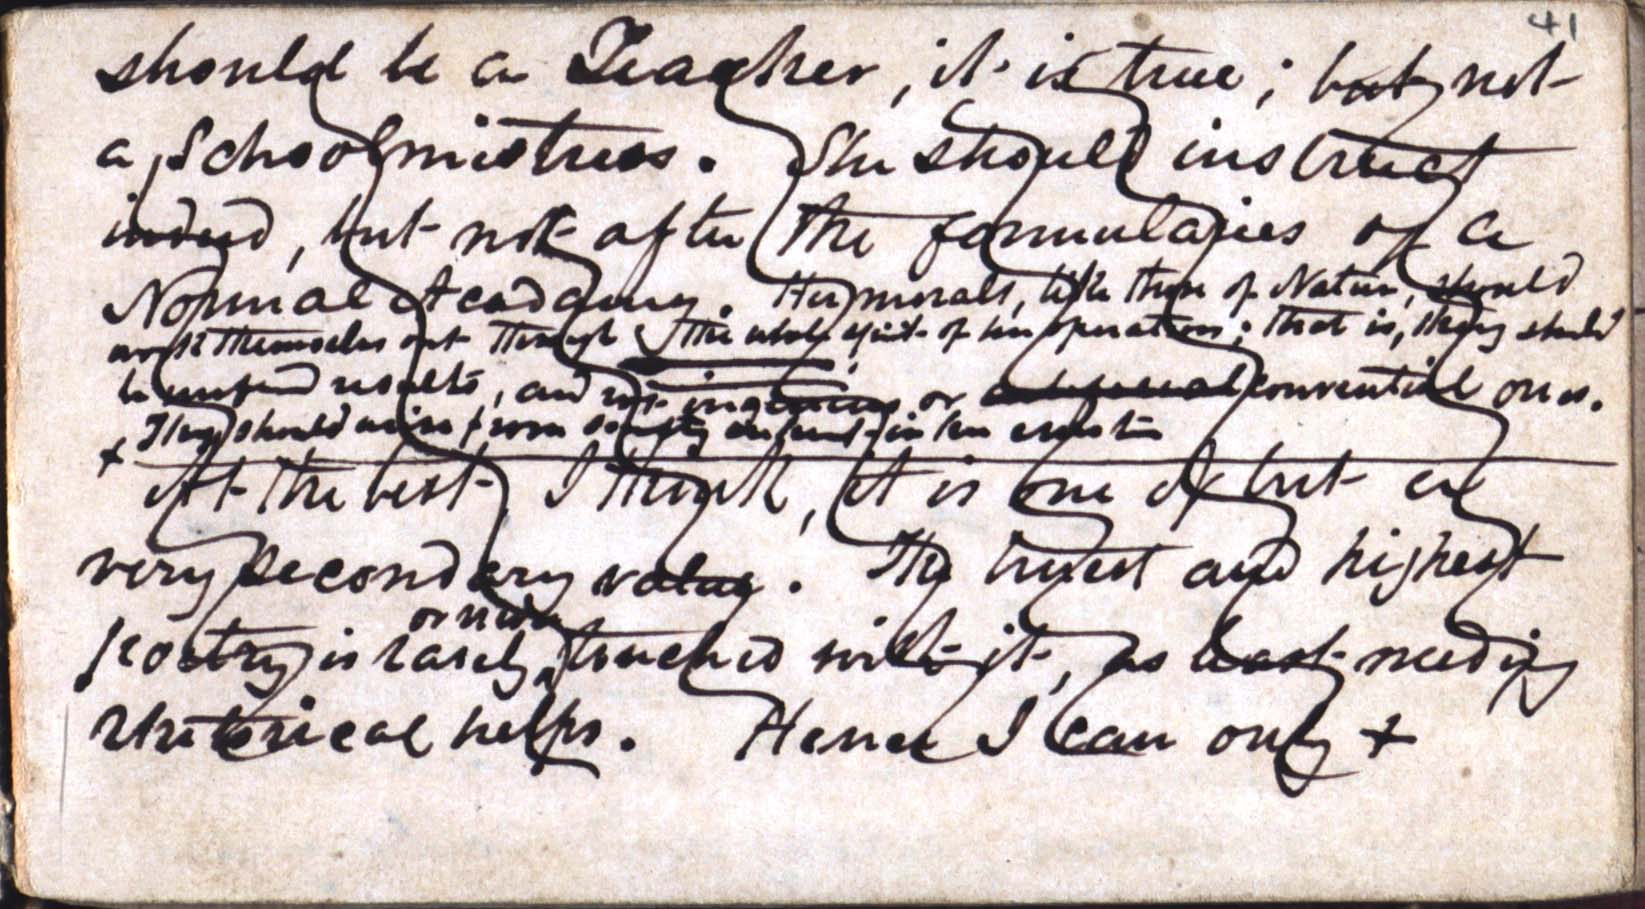 41
should be a Teacher, it is true; but not
a Schoolmistress. She should instruct
indeed, but not after the formularies of a
Normal Academy. Her morals, like those of Nature, should
work themselves out through the whole spirit of her operations; that is, they should
be results, and not ingenious or conventional ones.
+ They should arise from in her
At the best, I think, it is one of but a
very secondary value. The truest and highest
or never
poetry is rarely, touched with it, as least needing
rhetorical helps. Hence I can only +